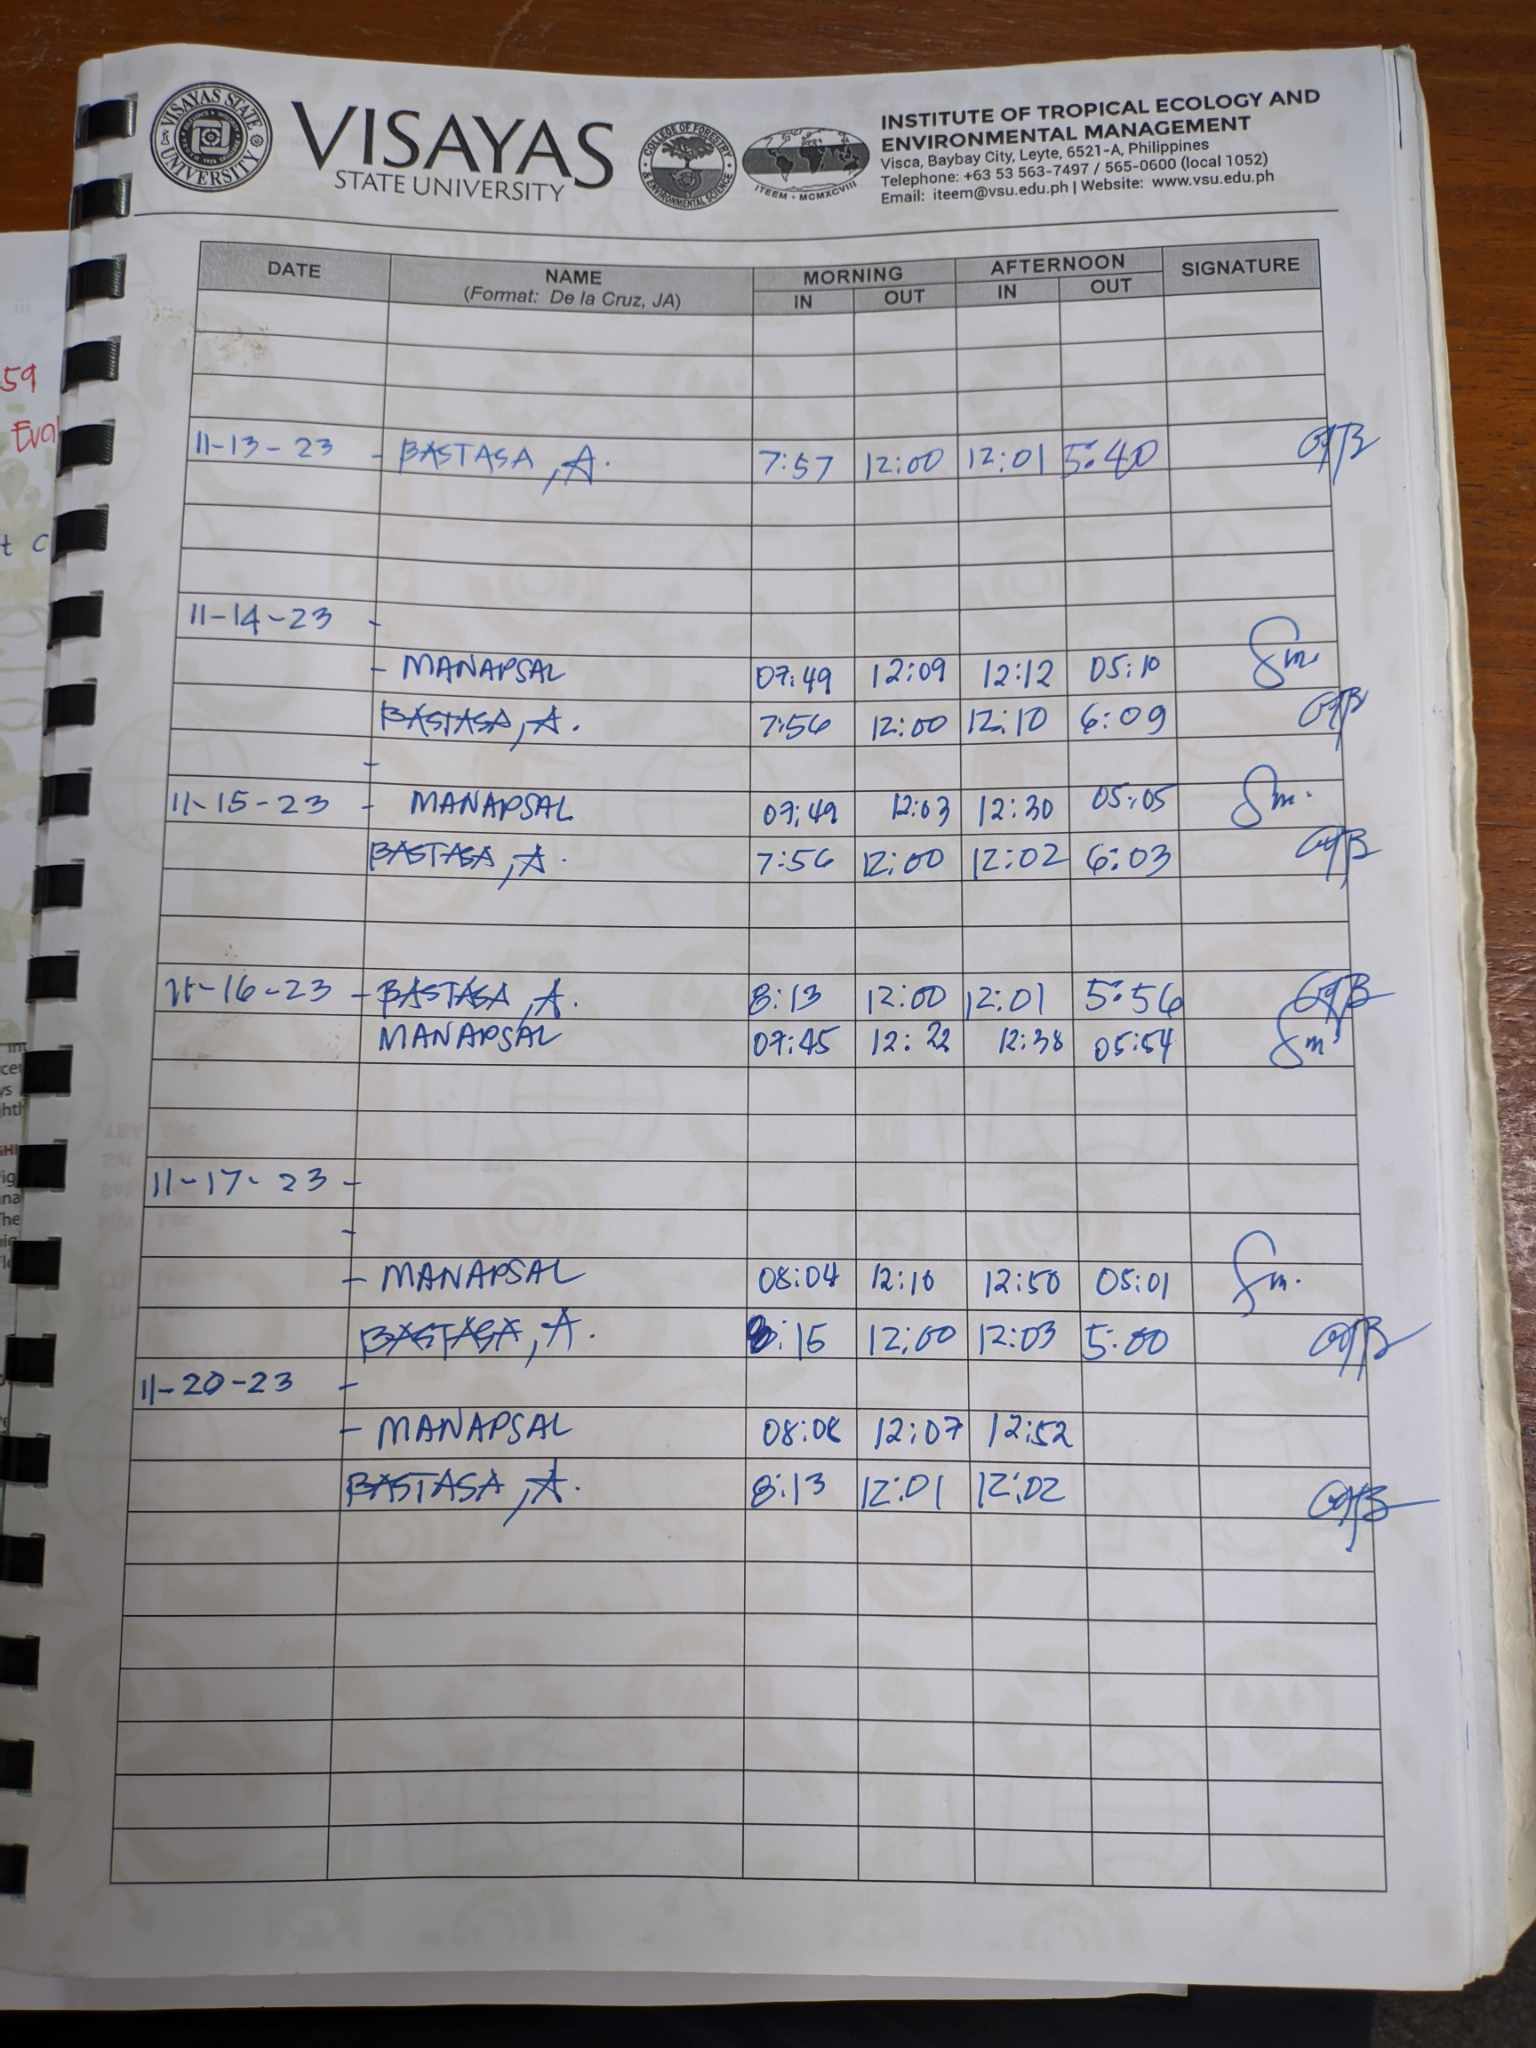 VISAYAS
STATE UNIVERSITY
VISAYAS STATE UNIVERSITY
COLLEGE OF FORESTRY & ENVIRONMENTAL SCIENCE
ITEEM • MCMXCVIII
INSTITUTE OF TROPICAL ECOLOGY AND
ENVIRONMENTAL MANAGEMENT
Visca, Baybay City, Leyte, 6521-A, Philippines
Telephone: +63 53 563-7497 / 565-0600 (local 1052)
Email: iteem@vsu.edu.ph | Website: www.vsu.edu.ph
DATE NAME MORNING AFTERNOON SIGNATURE
(Format: De la Cruz, JA) IN OUT IN OUT
11-13-23 - BASTASA, A. 7:57 12:00 12:01 5:40
11-14-23 -
- MANAPSAL 07:49 12:09 12:12 05:10
BASTASA, A. 7:56 12:00 12:10 6:09
-
11-15-23 - MANAPSAL 07:49 12:03 12:30 05:05
BASTASA, A. 7:56 12:00 12:02 6:03
11-16-23 - BASTASA, A. 8:13 12:00 12:01 5:56
MANAPSAL 07:45 12:22 12:38 05:54
11-17-23 -
-
- MANAPSAL 08:04 12:10 12:50 05:01
BASTASA, A. 8:15 12:00 12:03 5:00
11-20-23 -
- MANAPSAL 08:08 12:07 12:52
BASTASA, A. 8:13 12:01 12:02
59
Eval